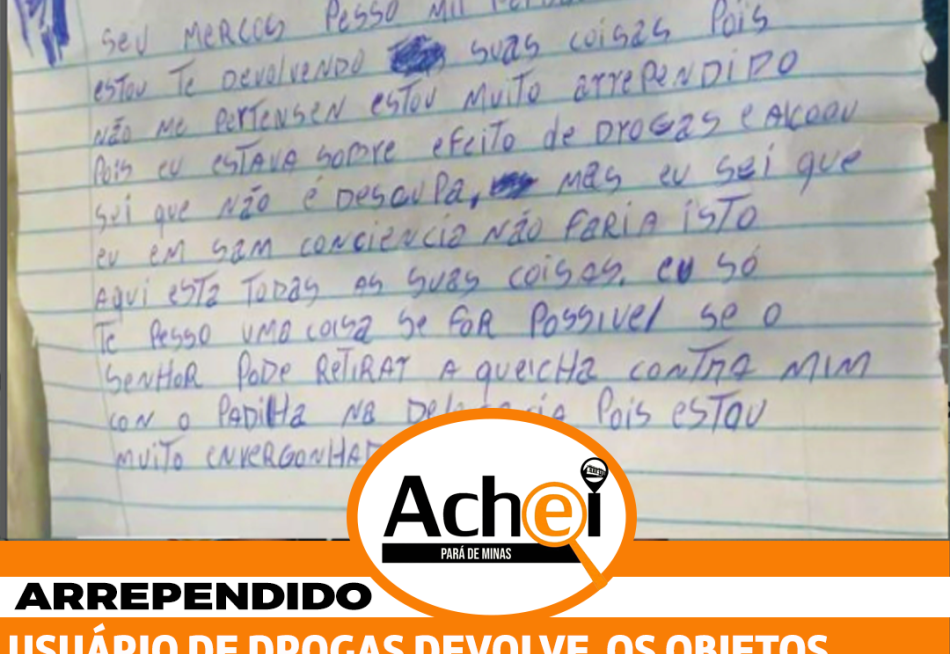 seu Mercos Pesso mil
estou te Devolvendo suas coisas Pois
não me Pertensen estou muito arrependido
Pois eu estava sobre efeito de Drogas e Alcoou
sei que não é Desculpa, mas eu sei que
eu em sam conciencia não faria isto
Aqui esta Todas as suas coisas. eu só
Te Pesso uma coisa se for Possivel se o
senhor Pode Retirar a queicha contra mim
con o Padilha na Pois estou
muito
Achei
PARÁ DE MINAS
ARREPENDIDO
USUÁRIO DE DROGAS DEVOLVE OS OBJETOS